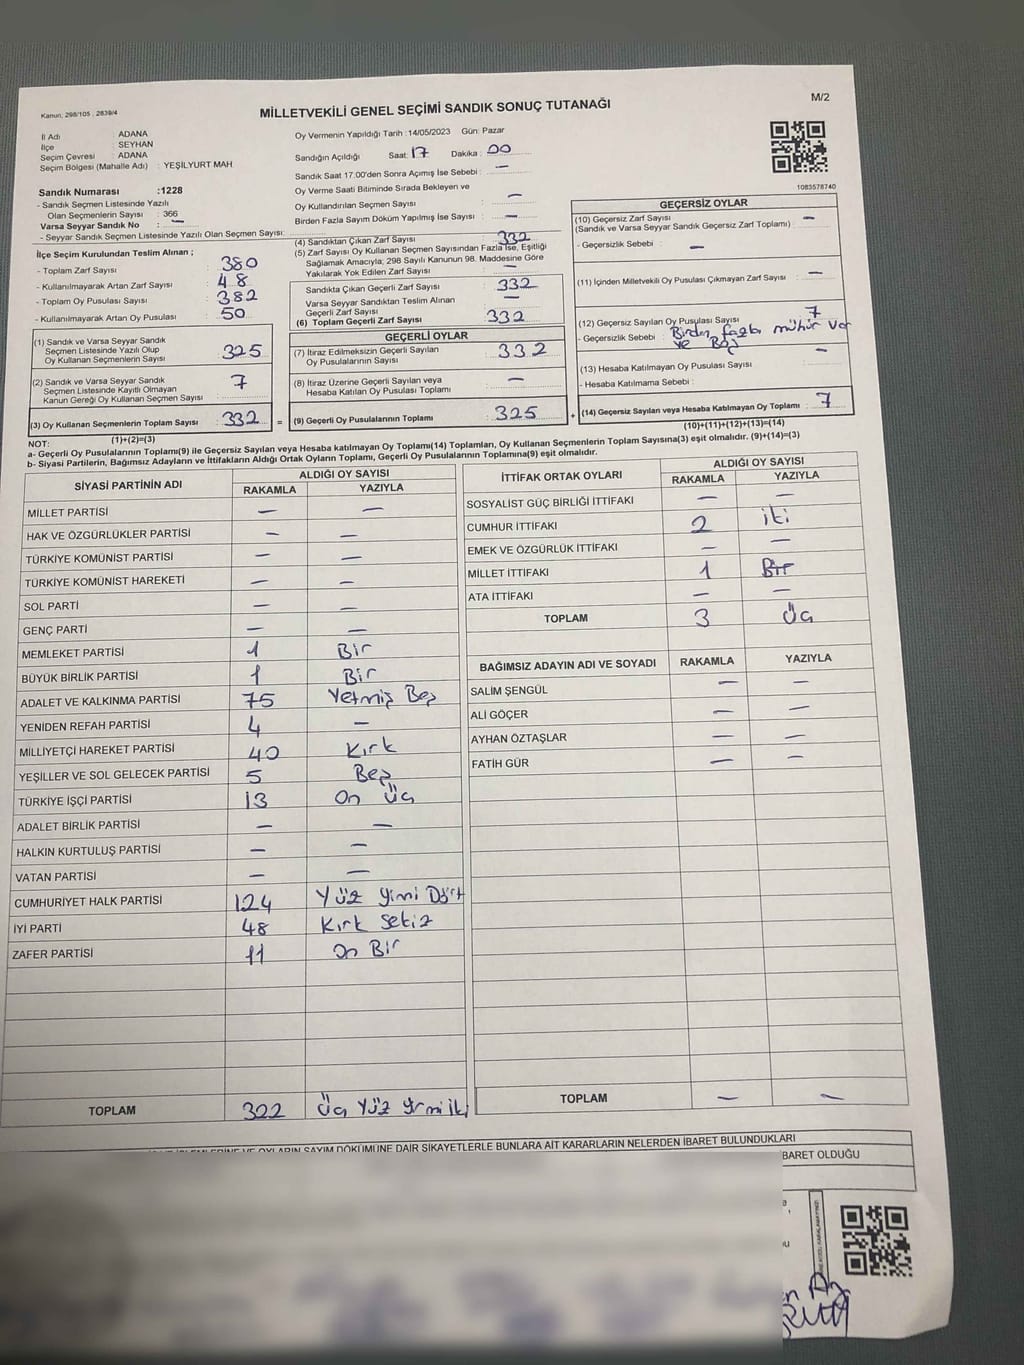 Kanun; 298/105 , 2839/4
MİLLETVEKİLİ GENEL SEÇİMİ SANDIK SONUÇ TUTANAĞI
M/2
İl Adı : ADANA
İlçe : SEYHAN
Seçim Çevresi : ADANA
Seçim Bölgesi (Mahalle Adı) : YEŞİLYURT MAH
Sandık Numarası :1228
- Sandık Seçmen Listesinde Yazılı
Olan Seçmenlerin Sayısı : 366
Varsa Seyyar Sandık No : —
- Seyyar Sandık Seçmen Listesinde Yazılı Olan Seçmen Sayısı:
İlçe Seçim Kurulundan Teslim Alınan ;
- Toplam Zarf Sayısı : 380
- Kullanılmayarak Artan Zarf Sayısı : 48
- Toplam Oy Pusulası Sayısı : 382
- Kullanılmayarak Artan Oy Pusulası : 50
(1) Sandık ve Varsa Seyyar Sandık
Seçmen Listesinde Yazılı Olup
Oy Kullanan Seçmenlerin Sayısı : 325
(2) Sandık ve Varsa Seyyar Sandık
Seçmen Listesinde Kayıtlı Olmayan
Kanun Gereği Oy Kullanan Seçmen Sayısı : 7
(3) Oy Kullanan Seçmenlerin Toplam Sayısı : 332 =
(1)+(2)=(3)
Oy Vermenin Yapıldığı Tarih :14/05/2023 Gün: Pazar
Sandığın Açıldığı Saat: 17 Dakika : 00
Sandık Saat 17.00'den Sonra Açımış İse Sebebi : —
Oy Verme Saati Bitiminde Sırada Bekleyen ve
Oy Kullandırılan Seçmen Sayısı : —
Birden Fazla Sayım Döküm Yapılmış İse Sayısı : —
(4) Sandıktan Çıkan Zarf Sayısı : 332
(5) Zarf Sayısı Oy Kullanan Seçmen Sayısından Fazla İse, Eşitliği
Sağlamak Amacıyla; 298 Sayılı Kanunun 98. Maddesine Göre
Yakılarak Yok Edilen Zarf Sayısı : —
Sandıkta Çıkan Geçerli Zarf Sayısı : 332
Varsa Seyyar Sandıktan Teslim Alınan
Geçerli Zarf Sayısı : —
(6) Toplam Geçerli Zarf Sayısı : 332
GEÇERLİ OYLAR
(7) İtiraz Edilmeksizin Geçerli Sayılan
Oy Pusulalarının Sayısı : 332
(8) İtiraz Üzerine Geçerli Sayılan veya
Hesaba Katılan Oy Pusulası Toplamı : —
(9) Geçerli Oy Pusulalarının Toplamı : 325 +
1083578740
GEÇERSİZ OYLAR
(10) Geçersiz Zarf Sayısı : —
(Sandık ve Varsa Seyyar Sandık Geçersiz Zarf Toplamı)
- Geçersizlik Sebebi : —
(11) İçinden Milletvekili Oy Pusulası Çıkmayan Zarf Sayısı : —
(12) Geçersiz Sayılan Oy Pusulası Sayısı : 7
- Geçersizlik Sebebi : Birden fazla mühür var
ve Boş
(13) Hesaba Katılmayan Oy Pusulası Sayısı : —
- Hesaba Katılmama Sebebi :
(14) Geçersiz Sayılan veya Hesaba Katılmayan Oy Toplamı : 7
(10)+(11)+(12)+(13)=(14)
NOT:
a- Geçerli Oy Pusulalarının Toplamı(9) ile Geçersiz Sayılan veya Hesaba katılmayan Oy Toplamı(14) Toplamları, Oy Kullanan Seçmenlerin Toplam Sayısına(3) eşit olmalıdır. (9)+(14)=(3)
b- Siyasi Partilerin, Bağımsız Adayların ve İttifakların Aldığı Ortak Oyların Toplamı, Geçerli Oy Pusulalarının Toplamına(9) eşit olmalıdır.
SİYASİ PARTİNİN ADI ALDIĞI OY SAYISI
RAKAMLA YAZIYLA
MİLLET PARTİSİ — —
HAK VE ÖZGÜRLÜKLER PARTİSİ — —
TÜRKİYE KOMÜNİST PARTİSİ — —
TÜRKİYE KOMÜNİST HAREKETİ — —
SOL PARTİ — —
GENÇ PARTİ — —
MEMLEKET PARTİSİ 1 Bir
BÜYÜK BİRLİK PARTİSİ 1 Bir
ADALET VE KALKINMA PARTİSİ 75 Yetmiş Beş
YENİDEN REFAH PARTİSİ 4 —
MİLLİYETÇİ HAREKET PARTİSİ 40 Kırk
YEŞİLLER VE SOL GELECEK PARTİSİ 5 Beş
TÜRKİYE İŞÇİ PARTİSİ 13 On Üç
ADALET BİRLİK PARTİSİ — —
HALKIN KURTULUŞ PARTİSİ — —
VATAN PARTİSİ — —
CUMHURİYET HALK PARTİSİ 124 Yüz yirmi Dört
İYİ PARTİ 48 Kırk Sekiz
ZAFER PARTİSİ 11 On Bir
TOPLAM 322 Üç Yüz yirmi iki
İTTİFAK ORTAK OYLARI ALDIĞI OY SAYISI
RAKAMLA YAZIYLA
SOSYALİST GÜÇ BİRLİĞİ İTTİFAKI — —
CUMHUR İTTİFAKI 2 iki
EMEK VE ÖZGÜRLÜK İTTİFAKI — —
MİLLET İTTİFAKI 1 Bir
ATA İTTİFAKI — —
TOPLAM 3 Üç
BAĞIMSIZ ADAYIN ADI VE SOYADI RAKAMLA YAZIYLA
SALİM ŞENGÜL — —
ALİ GÖÇER — —
AYHAN ÖZTAŞLAR — —
FATİH GÜR — —
TOPLAM — —
OYLARIN SAYIM DÖKÜMÜNE DAİR ŞİKAYETLERLE BUNLARA AİT KARARLARIN NELERDEN İBARET BULUNDUKLARI
İBARET OLDUĞU